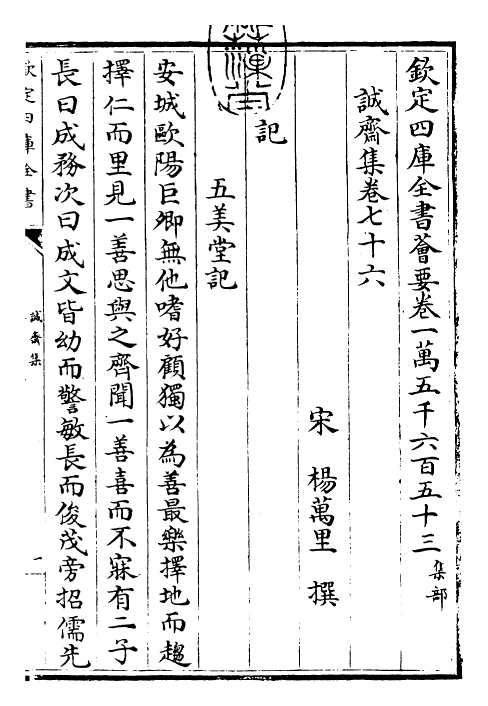 欽定四庫全書薈要卷一萬五千六百五十三 集部
誠齋集卷七十六
宋 楊萬里 撰
記
五美堂記
安城歐陽巨卿無他嗜好顧獨以為善最樂擇地而趨
擇仁而里見一善思與之齊聞一善喜而不寐有二子
長曰成務次曰成文皆幼而警敏長而俊茂旁招儒先
欽定四庫全書
誠齋集
一